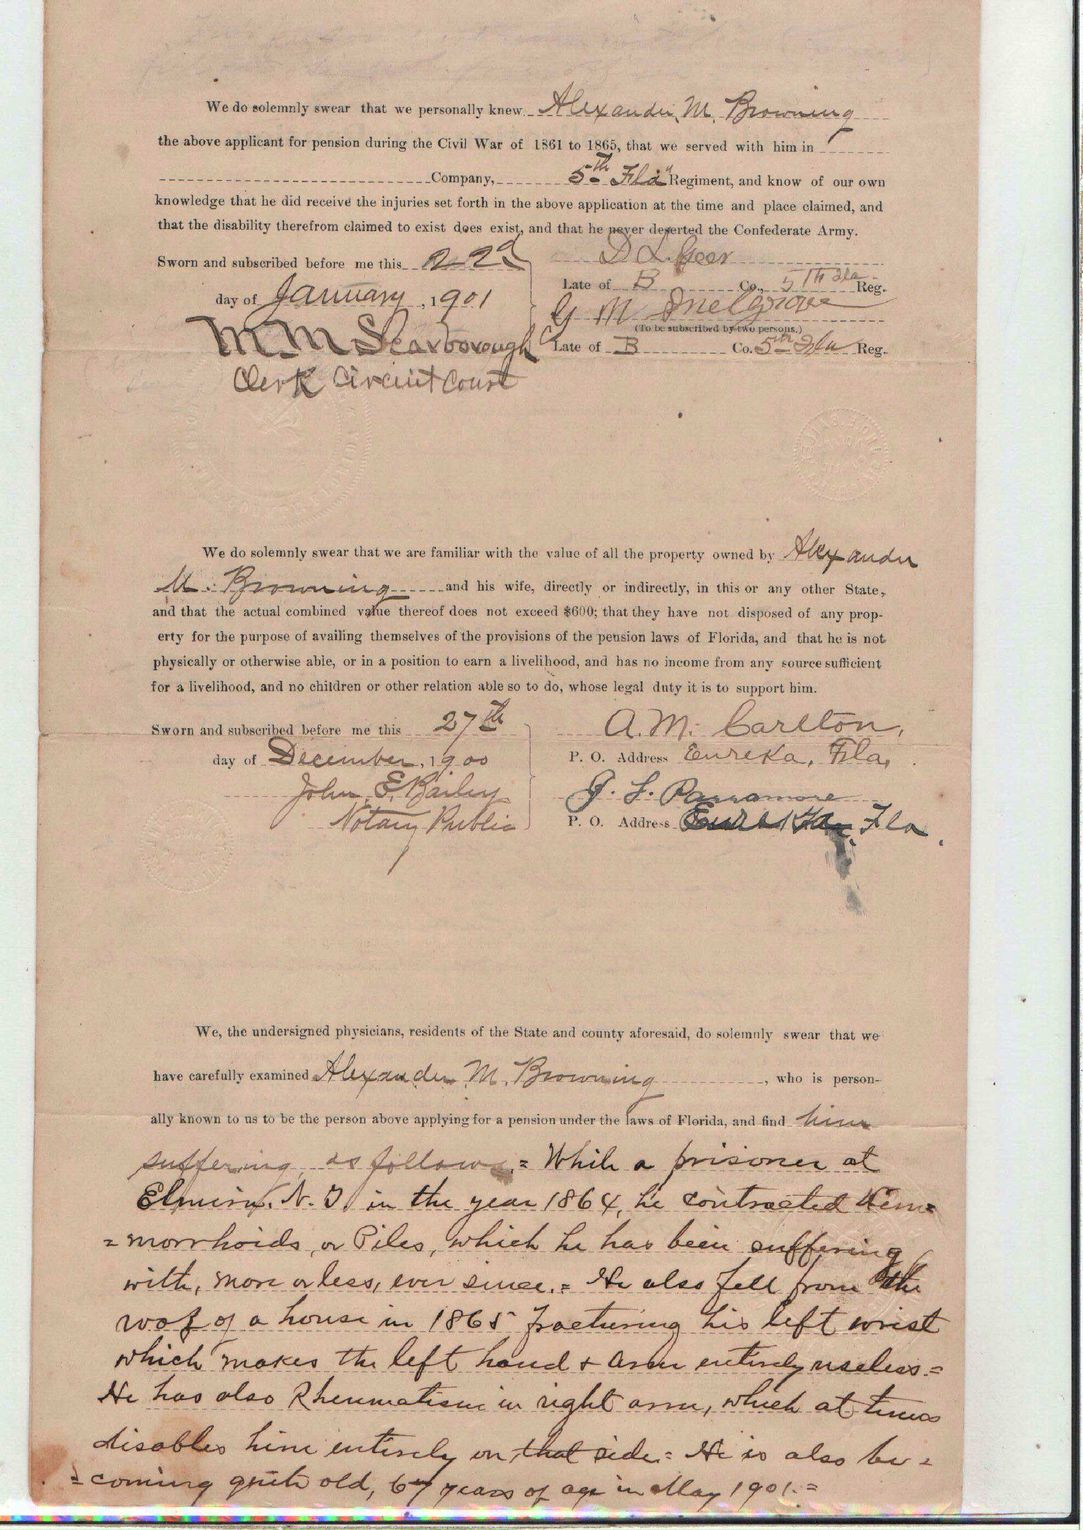 We do solemnly swear that we personally knew Alexander M. Browning
the above applicant for pension during the Civil War of 1861 to 1865, that we served with him in
Company, 5th Fla Regiment, and know of our own
knowledge that he did receive the injuries set forth in the above application at the time and place claimed, and
that the disability therefrom claimed to exist does exist, and that he never deserted the Confederate Army.
Sworn and subscribed before me this 22d
day of January, 1901
M M Scarborough
Clerk Circuit Court
D L Geer
Late of B Co., 5th Fla Reg.
G M Snelgrove
(To be subscribed by two persons.)
Late of B Co. 5th Fla Reg.
We do solemnly swear that we are familiar with the value of all the property owned by Alexander
M. Browning and his wife, directly or indirectly, in this or any other State,
and that the actual combined value thereof does not exceed $600; that they have not disposed of any prop-
erty for the purpose of availing themselves of the provisions of the pension laws of Florida, and that he is not
physically or otherwise able, or in a position to earn a livelihood, and has no income from any source sufficient
for a livelihood, and no children or other relation able so to do, whose legal duty it is to support him.
Sworn and subscribed before me this 27th
day of December, 1900
John E. Bailey
Notary Public
A. M. Carlton,
P. O. Address Eureka, Fla,
J. L. Parramore
P. O. Address Eureka, Fla.
We, the undersigned physicians, residents of the State and county aforesaid, do solemnly swear that we
have carefully examined Alexander M. Browning, who is person-
ally known to us to be the person above applying for a pension under the laws of Florida, and find him
suffering as follows = While a prisoner at
Elmira, N. Y. in the year 1864, he contracted Hem=
=morrhoids, or Piles, which he has been suffering
with, more or less, ever since. = He also fell from the
roof of a house in 1865 fracturing his left wrist
which makes the left hand & arm entirely useless. =
He has also Rheumatism in right arm, which at times
disables him entirely on that side. = He is also be=
=coming quite old, 67 years of age in May 1901. =